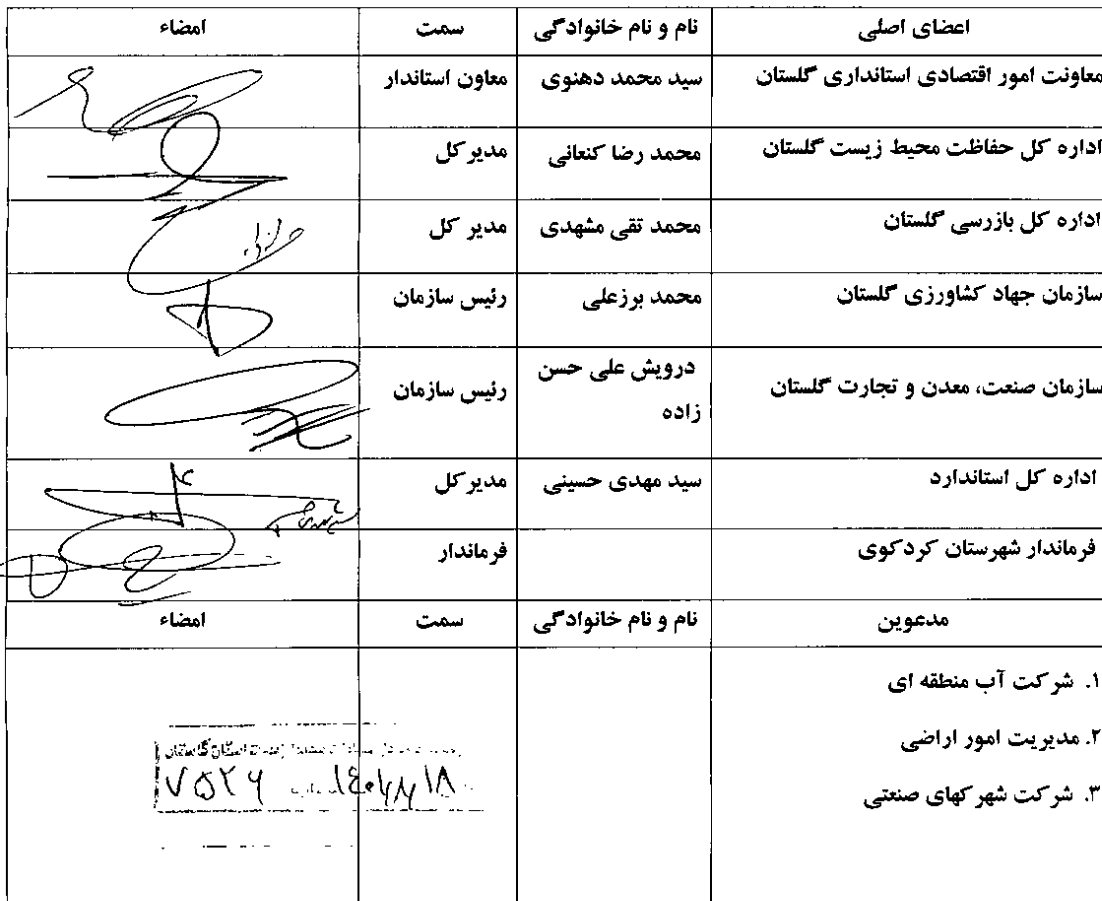 اعضای اصلی نام و نام خانوادگی سمت امضاء
معاونت امور اقتصادی استانداری گلستان سید محمد دهنوی معاون استاندار
اداره کل حفاظت محیط زیست گلستان محمد رضا کنعانی مدیر کل
اداره کل بازرسی گلستان محمد تقی مشهدی مدیر کل
سازمان جهاد کشاورزی گلستان محمد برزعلی رئیس سازمان
سازمان صنعت، معدن و تجارت گلستان درویش علی حسن رئیس سازمان
زاده
اداره کل استاندارد سید مهدی حسینی مدیر کل
فرماندار شهرستان کردکوی فرماندار
مدعوین نام و نام خانوادگی سمت امضاء
۱. شرکت آب منطقه ای
۲. مدیریت امور اراضی
۳. شرکت شهرکهای صنعتی
استان گلستان
۷۵۲۶